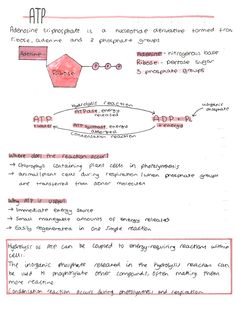 ATP
Adenosine triphosphate is a nucleotide derivative formed from
ribose, adenine and 3 phosphate groups
Adenine
Ribose
P
P
P
Adenine - nitrogenous base
Ribose - pentose sugar
3 phosphate groups
Hydrolysis reaction
ATPase, energy
released
inorganic
phosphate
ATP
ADP + Pi
ATP synthase, energy
absorbed
Condensation reaction
Where does the reaction occur?
→ Chlorophyll containing plant cells in photosynthesis
→ animal/plant cells during respiration (when phosphate groups
are transferred from donor molecules
Why ATP is useful
→ Immediate energy source
→ Small manageable amounts of energy released
→ Easily regenerated in one single reaction
Hydrolysis of ATP can be coupled to energy-requiring reactions within
cells.
The inorganic phosphate released in the hydrolysis reaction can
be used to phosphorylate other compounds, often making them
more reactive
Condensation reaction occurs during photosynthesis and respiration